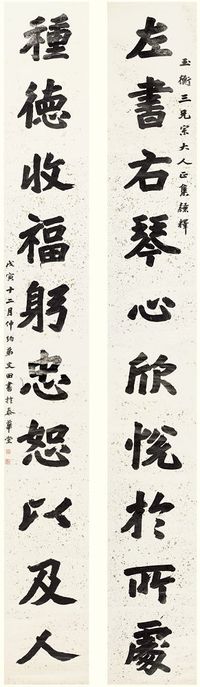 玉衡三兄宗大人正集隸釋
左書右琴心欣悅於所處
種德收福躬忠恕以及人
戊寅十二月仲約弟文田書於泰華堂